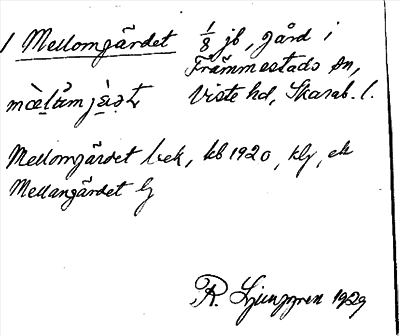 1 Mellomgärdet 1/8 jb, gård i
Främmestads sn,
Viste hd, Skarab. l.
Mellomgärdet bek, kb 1920, klg, ek
Mellangärdet G
R. Ljunggren 1929